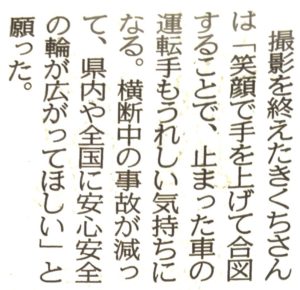 撮影を終えたきくちさん
は「笑顔で手を上げて合図
することで、止まった車の
運転手もうれしい気持ちに
なる。横断中の事故が減っ
て、県内や全国に安心安全
の輪が広がってほしい」と
願った。